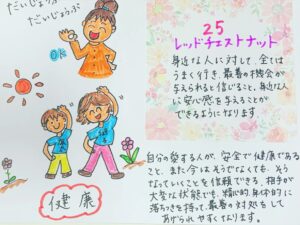 だいじょうぶ
だいじょうぶ
OK
健康
25
レッドチェストナット
身近な人に対して、全ては
うまく行き、最善の機会が
与えられると信じること。身近な人
に安心感を与えることが
できるようになります
自分の愛する人が、安全で健康である
こと、また今はそうでなくても、そう
なっていくことを信頼できる。相手が
大変な状態でも、精神的、身体的に
落ちつきを持って、最善の対処をして
あげられやすくなります。